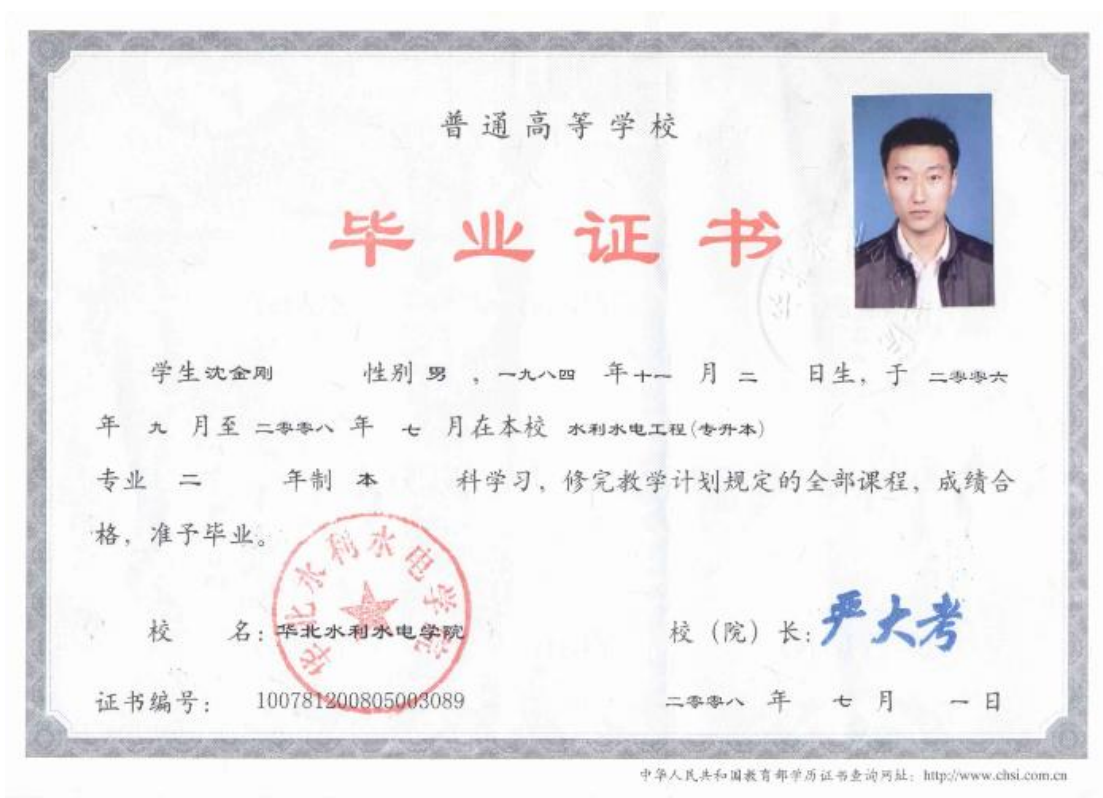 普通高等学校
毕业证书
学生沈金刚 性别 男 ，一九八四 年十一 月 二 日生，于 二零零六
年 九 月至 二零零八 年 七 月在本校 水利水电工程(专升本)
专业 二 年制 本 科学习，修完教学计划规定的全部课程，成绩合
格，准予毕业。
华北水利水电学院
校 名：华北水利水电学院 校（院）长：严大考
证书编号： 100781200805003089 二零零八 年 七 月 一 日
中华人民共和国教育部学历证书查询网址：http://www.chsi.com.cn